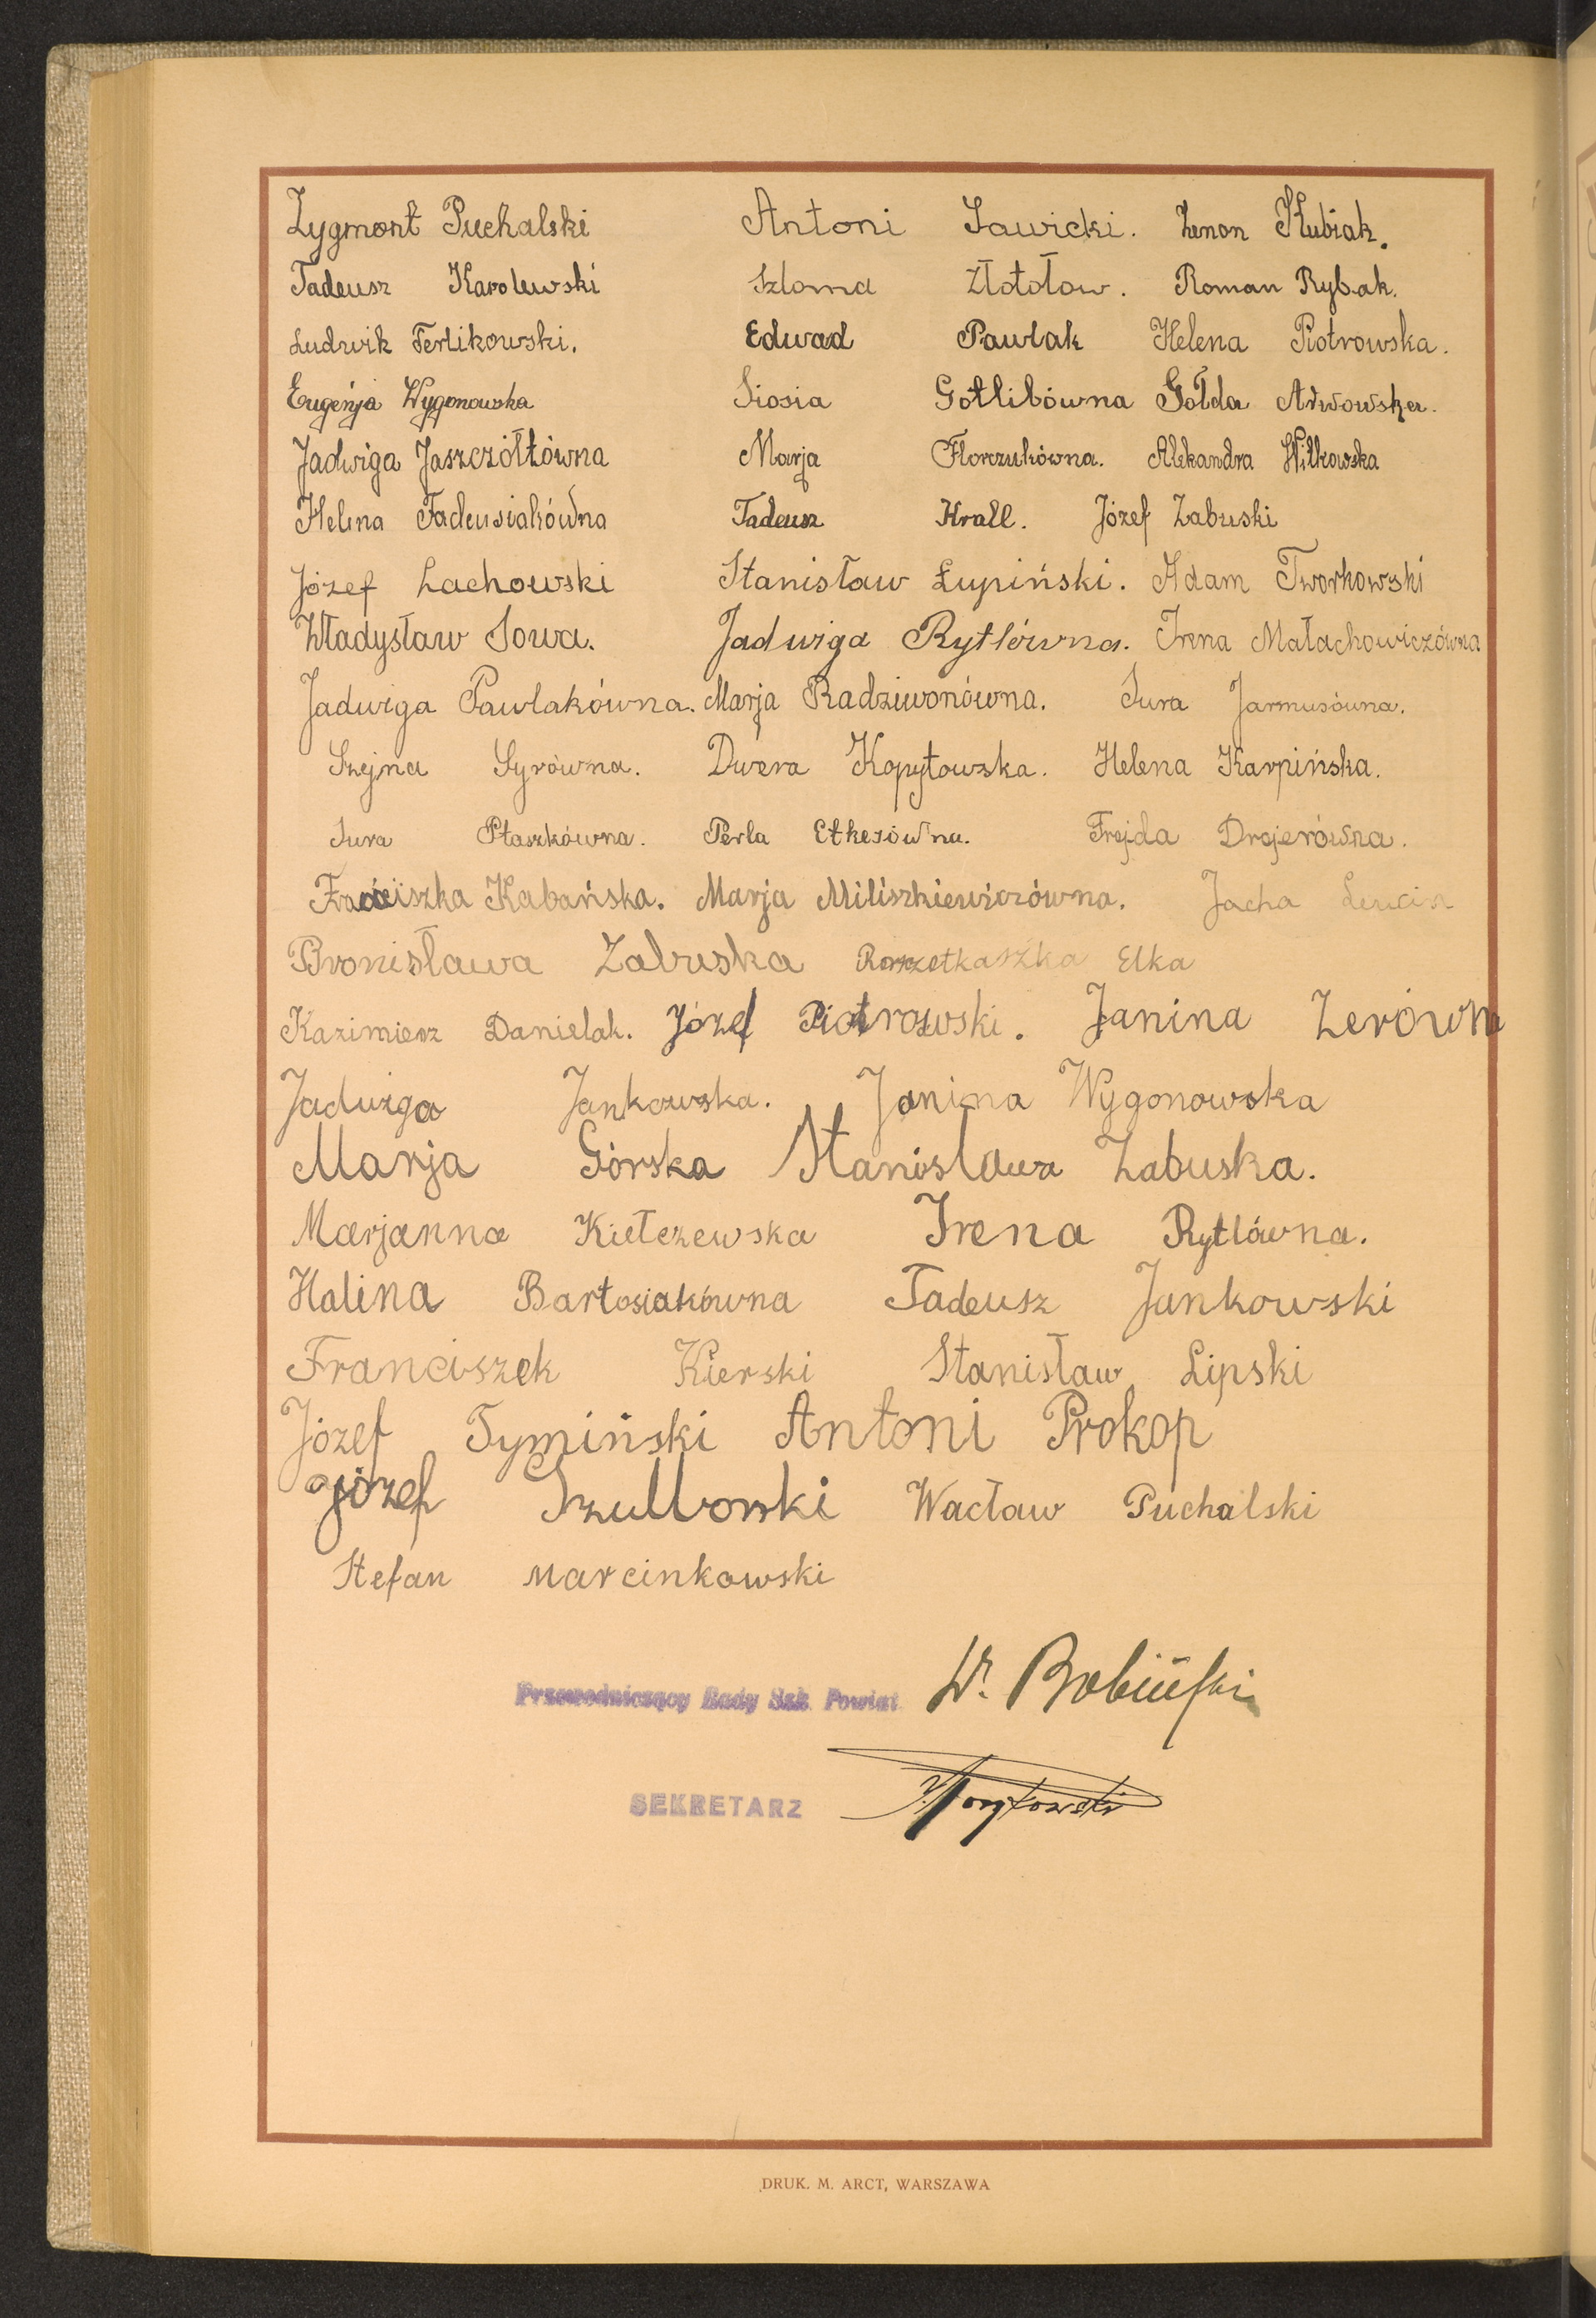 Zygmont Puchalski Antoni Sawicki. Zenon Kubiak.
Tadeusz Karolewski Szloma Złotołow. Roman Rybak.
Ludwik Ferlikowski. Edwad Pawlak Helena Piotrowska.
Eugenja Wygonowska Siosia Gotlibówna Gołda
Jadwiga Jaszczółtówna Marja Florczukówna. Alekandra Wilkowska
Helena Tadeusiakówna Tadeusz Krall. Józef Zabuski
Józef Lachowski Stanisław Łupiński. Adam Tworkowski
Władysław Sowa. Jadwiga Rytlówna. Irena Małachowiczówna
Jadwiga Pawlakówna. Marja Radziwonówna. Sura Jarmusówna.
Szejna Syrówna. Dwera Kopytowska. Helena Karpińska.
Sura Ptaszkówna. Perla Etkesówna. Frejda Drejerówna.
Kabańska. Marja Miliszkiewiczówna. Jacha
Bronisława Zabuska Elka
Kazimierz Danielak. Józef Piotrowski. Janina Zerówna
Jadwiga Jankowska. Janina Wygonowska
Marja Górska Stanisława Zabuska.
Marjanna Kiełczewska Irena Rytlówna.
Halina Bartosiakówna Tadeusz Jankowski
Franciszek Kierski Stanisław Lipski
Józef Tymiński Antoni Prokop
Józef Szulborski Wacław Puchalski
Stefan Marcinkowski
Przewodniczący Rady Szk. Powiat. W. Bobiński
SEKRETARZ
DRUK. M. ARCT, WARSZAWA